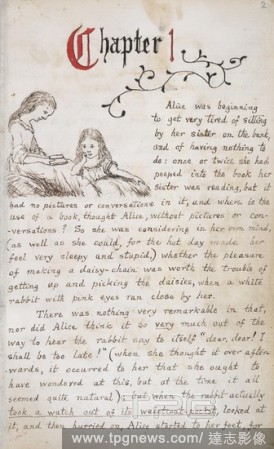 2
Chapter 1
Alice was beginning
to get very tired of sitting
by her sister on the bank,
and of having nothing to
do: once or twice she had
peeped into the book her
sister was reading, but it
had no pictures or conversations in it, and where is the
use of a book, thought Alice, without pictures or con-
-versations? So she was considering in her own mind,
(as well as she could, for the hot day made her
feel very sleepy and stupid,) whether the pleasure
of making a daisy-chain was worth the trouble of
getting up and picking the daisies, when a white
rabbit with pink eyes ran close by her.
There was nothing very remarkable in that,
nor did Alice think it so very much out of the
way to hear the rabbit say to itself "dear, dear! I
shall be too late!" (when she thought it over after-
wards, it occurred to her that she ought to
have wondered at this, but at the time it all
seemed quite natural); but when the rabbit actually
took a watch out of its waistcoat-pocket, looked at
it, and then hurried on, Alice started to her feet, for
www.tpgnews.com 達志影像